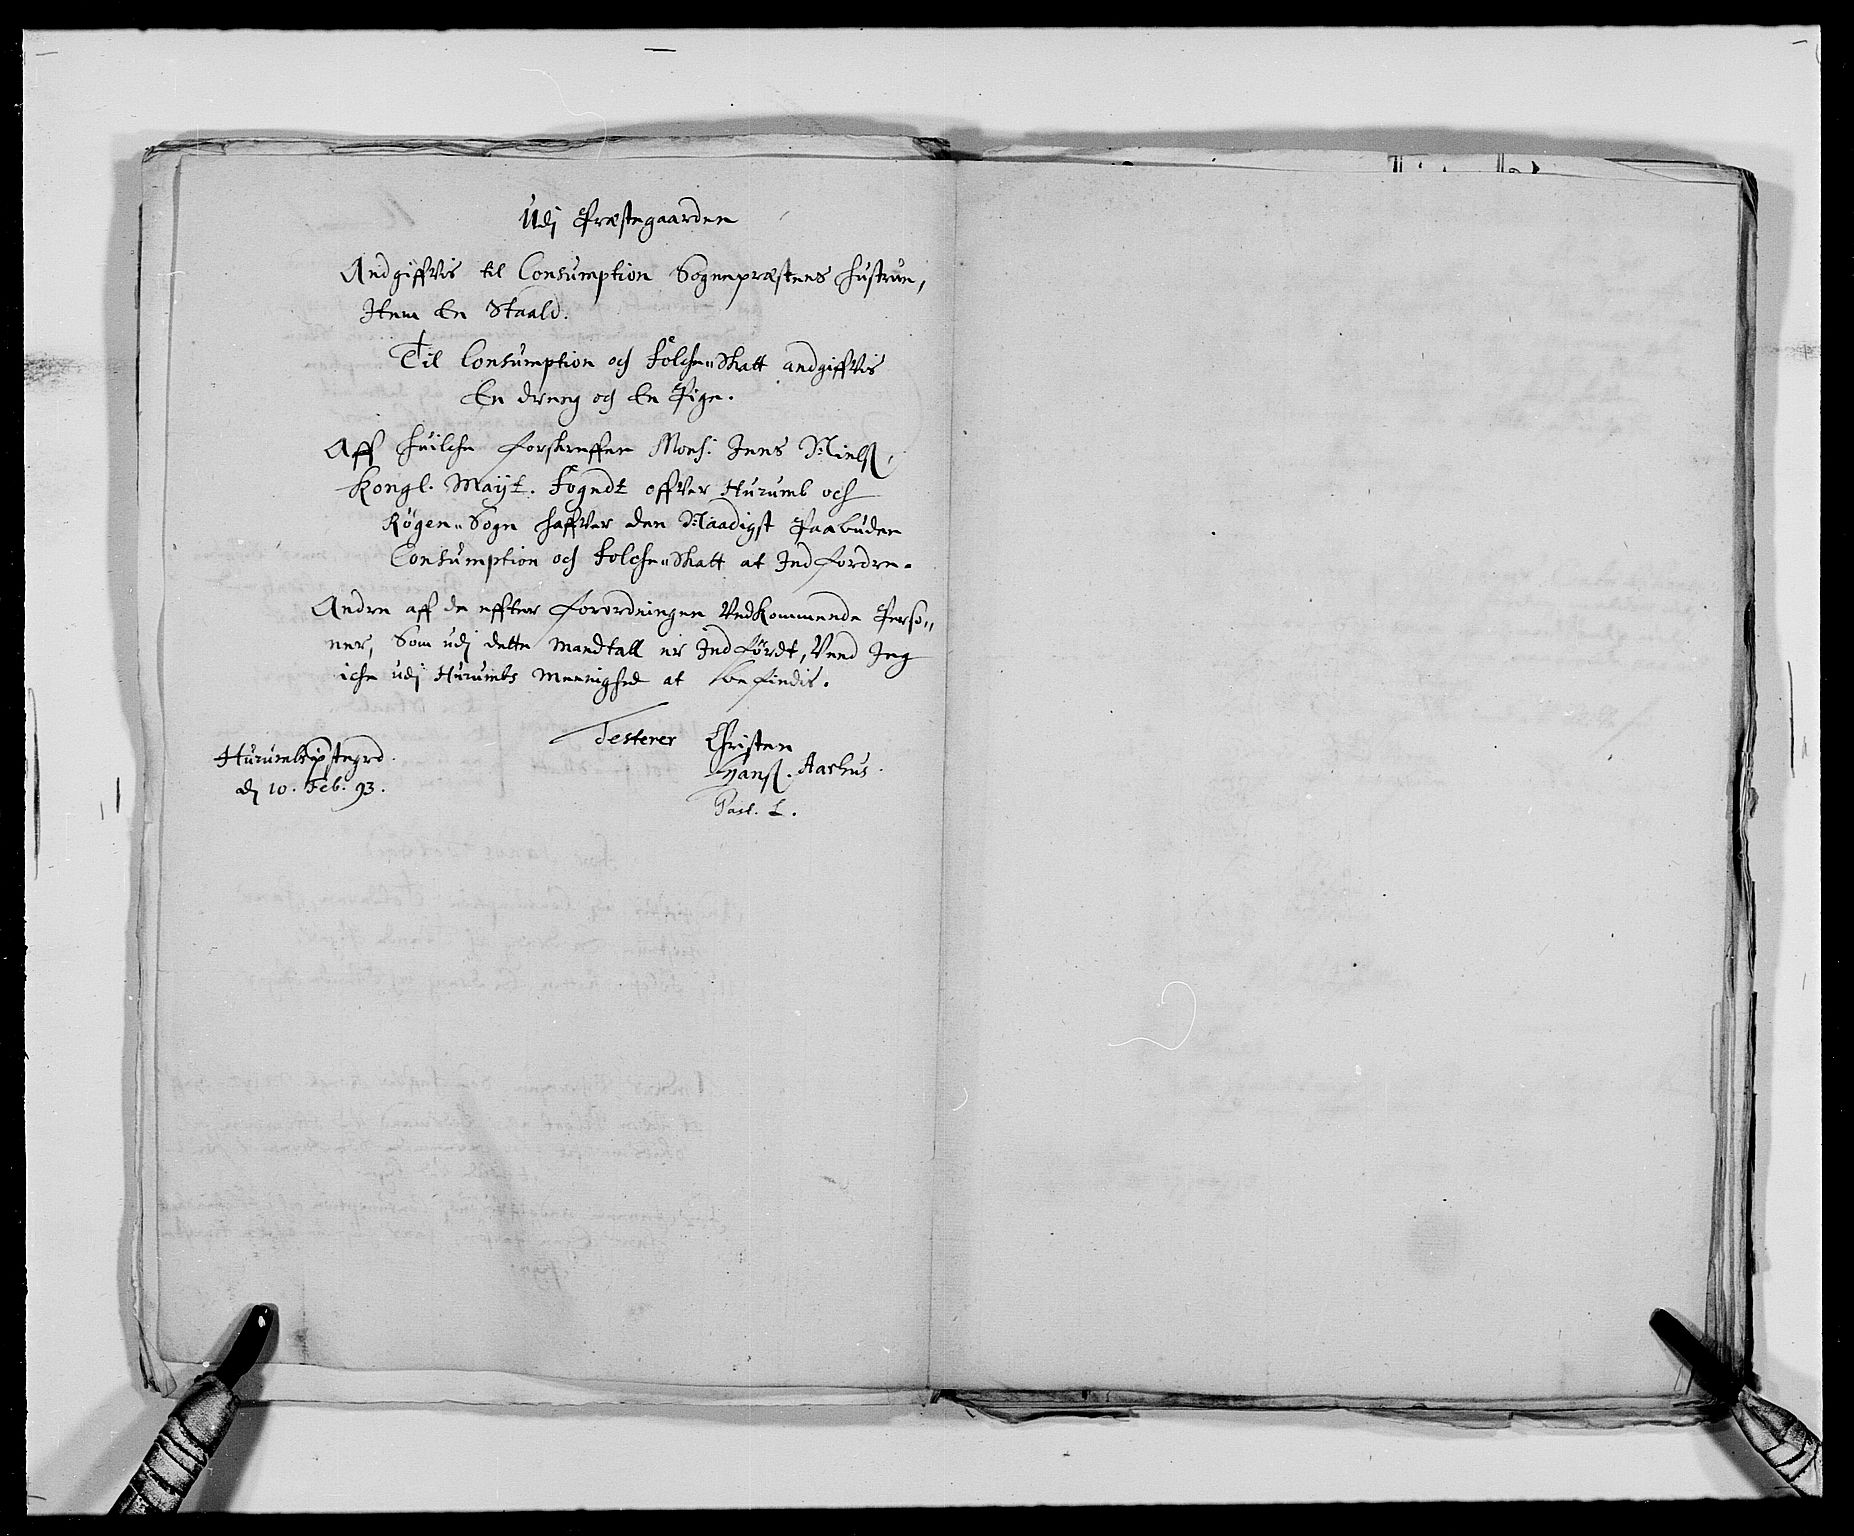 Udj Præstegaarden
Andgiffvis til Consumption Sognepræstens hustrue,
Item En Staald.
Til Consumption och Folche=Skatt andgiffvis
En dreng och En Pige.
Aff huilche forskreffne Mons: Jens Nielß,
Kongl. Mayt. Fogedt offver Hurumb och
Røgen=Sogn haffver den Naadigst Paabuden
Consumption och Folche=Skatt at Indfordre.
Andre aff de effter forordningen Vedkommende Perso=
ner, Som udj dette Mandtall er Indfördt, Veed Jeg
iche udj Hurumbs Meenighed at befindis.
Testerer Christen
Hanß. Aarhus.
Past. L.
Hurumbs pstegrd.
dj 10. Feb. 93.